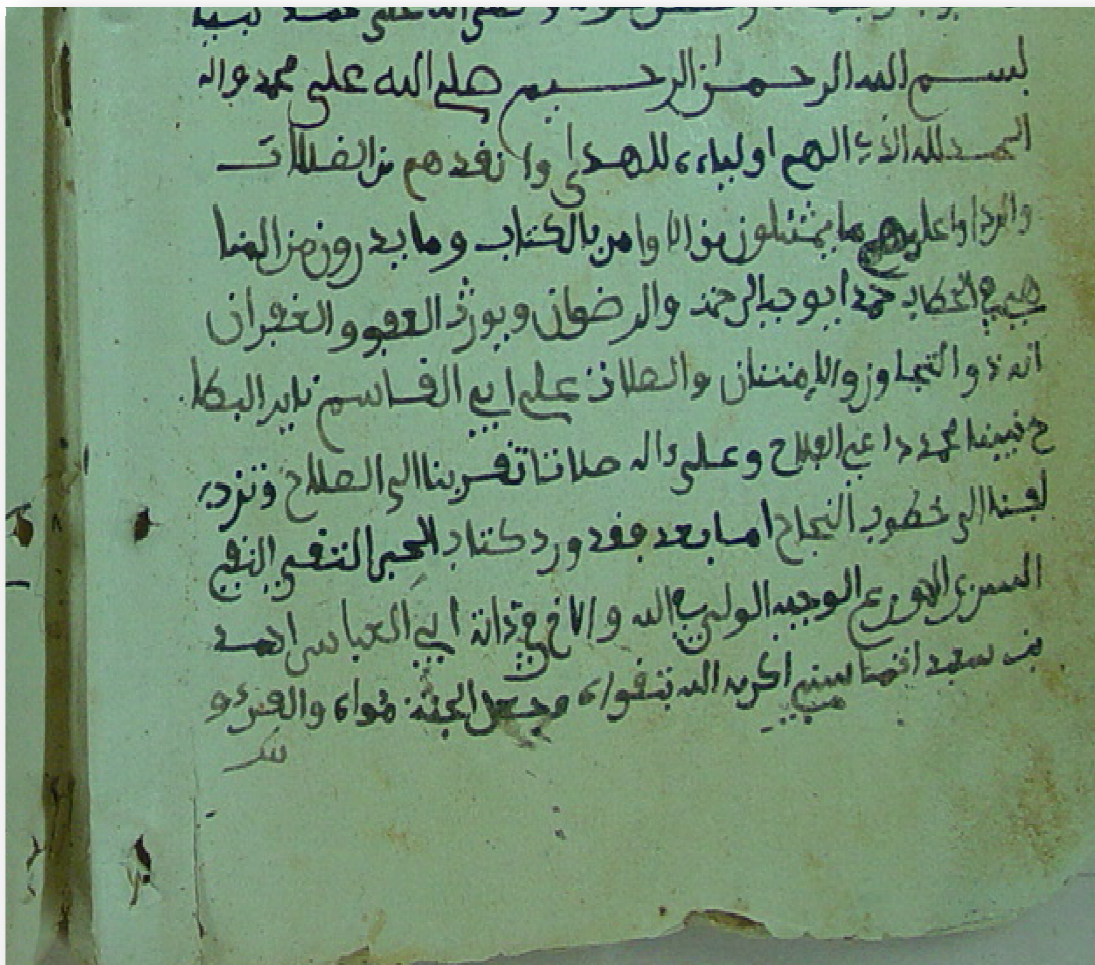 بسم الله الرحمن الرحيم صلى الله على محمد واله
الحمد لله الذي الهم اولياءه للهدى وانقذهم من الضلالات
والردا واعلمهم ما يمتثلون من الاوامر بالكتاب وما يذرون من المنا
هي في الخطاب حمدا يوجب الرحمة والرضوان ويورث العفو والغفران
انه ذو التجاوز والامتنان والصلاة على ابي القاسم
نبينا محمد داعي الفلاح وعلى ءاله صلاتا تقربنا الى الصلاح وتزد
لفنا الى خطوب النجاح اما بعد فقد ورد كتاب المحب التقي النقي
السري الورع الوجيه الولي في الله والاخ في ذاته ابي العباس احمد
بن سعيد اكرمه الله بتقواه وجعل الجنة مثواه والفردو